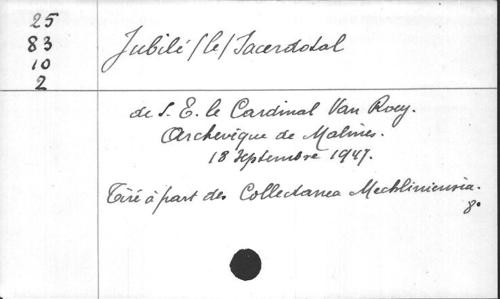 25
83
10
2
Jubilé/le/Sacerdotal
de S. E. le Cardinal Van Roey.
Archevêque de Malines.
18 Septembre 1947.
Tiré à part des Collectanea Mechliniensia.
8°